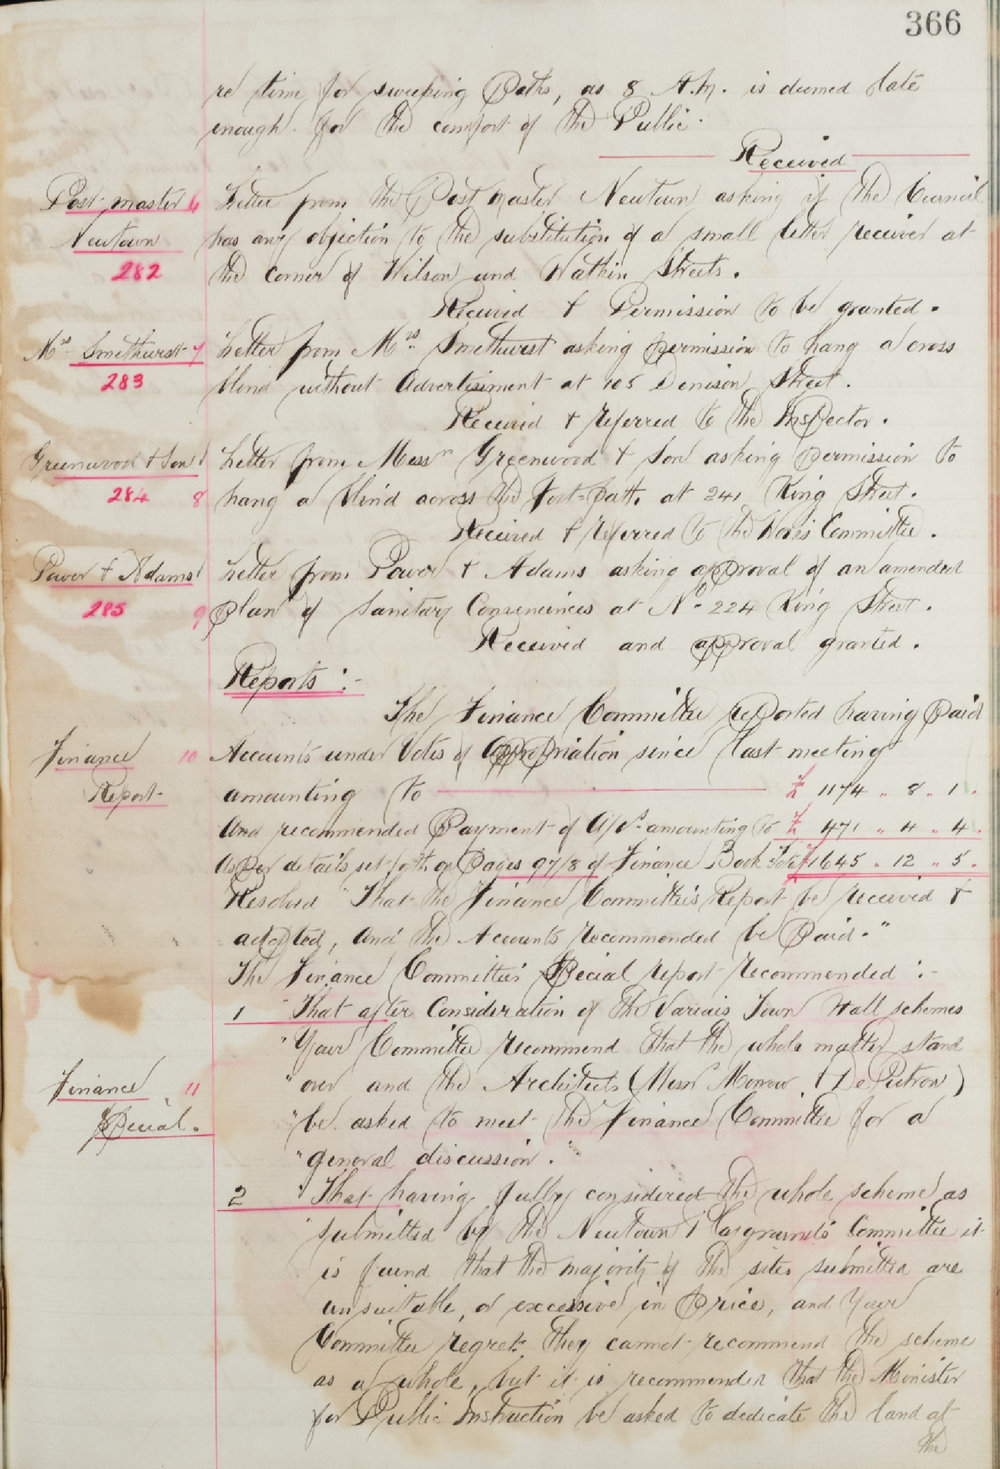 366
re time for sweeping Paths, as 8 A.M. is deemed late
enough for the comfort of the Public.
Received
Post-master 6 Letter from the Post Master Newtown asking if the Council
Newtown has any objection to the substitution of a small letter receiver at
282 the corner of Wilson and Watkin Streets.
Received & Permission to be granted.
Mrs. Smethurst 7 Letter from Mrs. Smethurst asking permission to hang a cross
283 blind without Advertisiment at 105 Denison Street.
Received & referred to the Inspector.
Greenwood & Son Letter from Messrs Greenwood & Son asking permission to
284 8 hang a blind across the Foot-path, at 241 King Street.
Received & referred to the Works Committee.
Power & Adams Letter from Power & Adams asking approval of an amended
285 9 plan of Sanitary Conveniences at No. 224 King Street.
Received and approval granted.
Reports :-
The Finance Committee reported having Paid
Finance 10 Accounts under Votes of Appropriation since last meeting
Report- amounting to £ 1174 " 8 " 1.
And recommended Payment of A/cs. amounting to £ 471 " 4 " 4.
As Per details set forth on Pages 97/8 of Finance Book Total £1645 " 12 " 5.
Resolved "That the Finance Committee's Report be received &
adopted, and the Accounts recommended be Paid."
The Finance Committees' Special report recommended :-
1 "That after Consideration of the Various Town Hall schemes
"Your Committee recommend that the whole matter stand
Finance 11 "over and the Architects (Messrs Morrow & De Putron)
Special. "be asked to meet the Finance Committee for a
"general discussion."
2 "That having fully considered the whole scheme as
submitted by the Newtown Playgrounds Committee it
is found that the majority of the sites submitted are
unsuitable, or excessive in price, and Your
Committee regret they cannot recommend the scheme
as a whole, but it is recommended that the Minister
for Public Instruction be asked to dedicate the land at
the